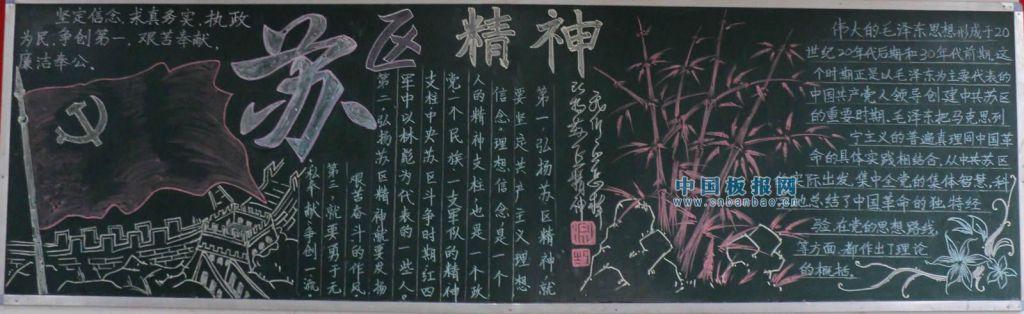 坚定信念、求真务实、执政
为民、争创第一、艰苦奉献、
廉洁奉公。
苏区精神
第一，弘扬苏区精神就
要坚定共产主义理想
信念。理想信念是一个
人的精神支柱也是一个政
党一个民族、一支军队的精神
支柱中央苏区斗争时期红四
军中以林彪为代表的一些人。
第二弘扬苏区精神就要发扬
艰苦奋斗的作风。
第三，就要勇于无
私奉献争创一流。
伟人的毛泽东思想形成于20
世纪20年代后期和30年代前期.这
个时期正是以毛泽东为主要代表的
中国共产党人领导创建中共苏区
的重要时期、毛泽东把马克思列
宁主义的普遍真理同中国革
命的具体实践相结合,从中共苏区
实际出发,集中全党的集体智慧,科
总结了中国革命的独特经
验.在党的思想路线
等方面.都作出了理论
的概括.
中国板报网
www.cnbanbao.cn